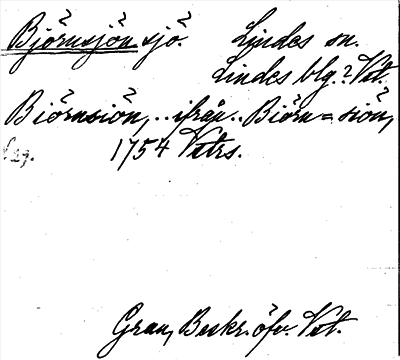 Björnsjön sjö. Lindes sn.
Lindes blg.? Vstl.
Biörnsiön, .. ifrån .. Biörn = siön,
1754 Vstrs.
Grau, Beskr. öfv. Vstl.